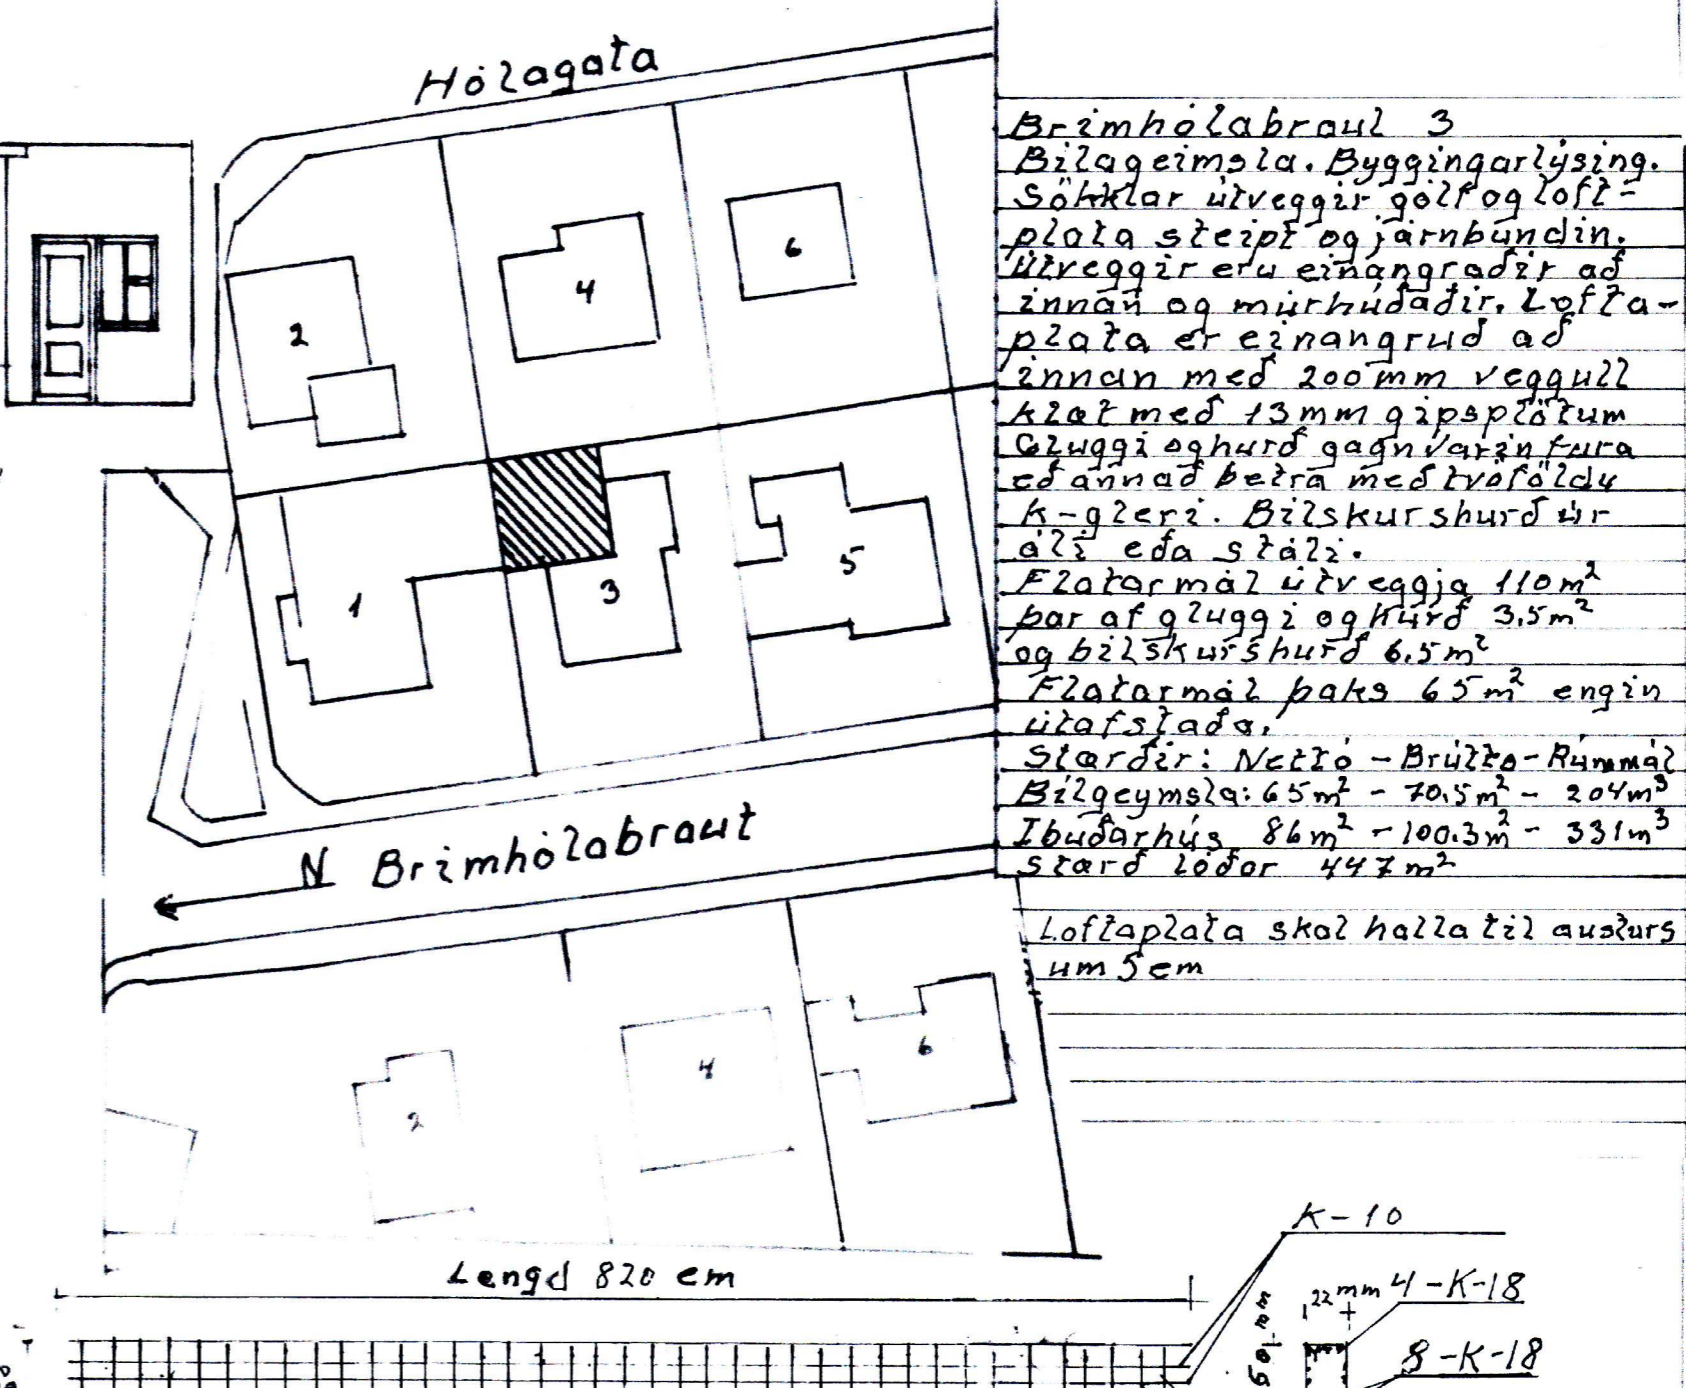 Hólagata
2
4
6
1
3
5
N Brimhólabraut
2
4
6
Brimhólabraut 3
Bílageimsla. Byggingarlýsing.
Sökklar útveggir gólf og loft-
plata steipt og járnbundin.
Útveggir eru einangraðir að
innan og múrhúðaðir. Lofta-
plata er einangruð að
innan með 200 mm veggull
klæt með 13 mm gipsplötum
Gluggi og hurð gagnvarin fura
eð annað betra með tvöföldu
K-gleri. Bílskurshurð úr
áli eða stáli.
Flatarmál útveggja 110 m²
þar af gluggi og hurð 3,5 m²
og bílskurshurð 6.5 m²
Flatarmál þaks 65 m² engin
útafstaða.
Stærðir: Nettó - Brúttó - Rúmmál
Bílgeymsla: 65 m² - 70,5 m² - 204 m³
Ibuðarhús 86 m² - 100.3 m² - 331 m³
stærð lóðar 447 m²
Loftaplata skal halla til austurs
um 5 cm
Lengd 820 cm
K-10
22 mm
4-K-18
8-K-18